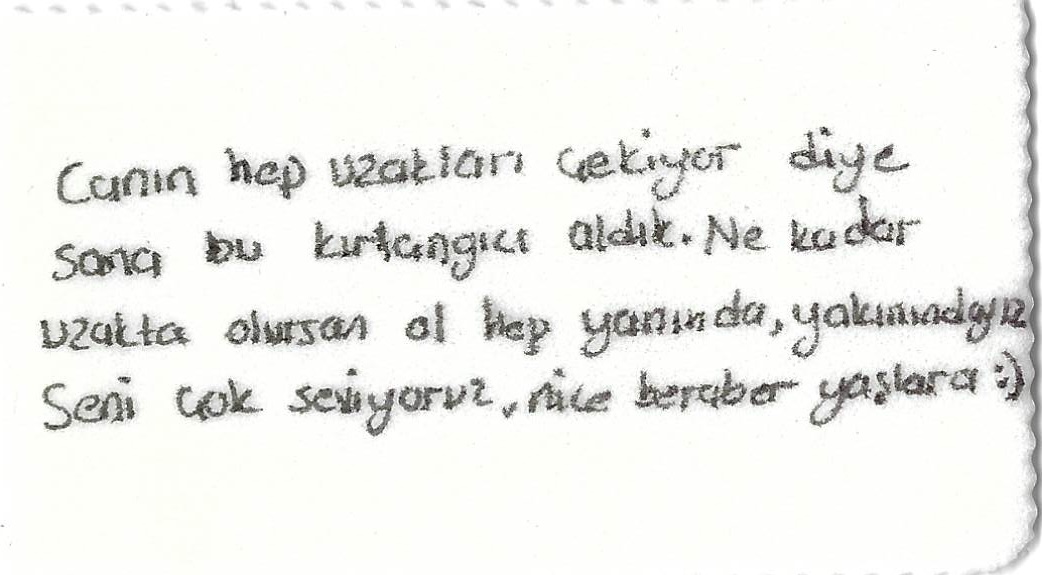 Canın hep uzakları çekiyor diye
sana bu kırlangıcı aldık. Ne kadar
uzakta olursan ol hep yanında, yakınındayız
Seni çok seviyoruz, nice beraber yaşlara :)